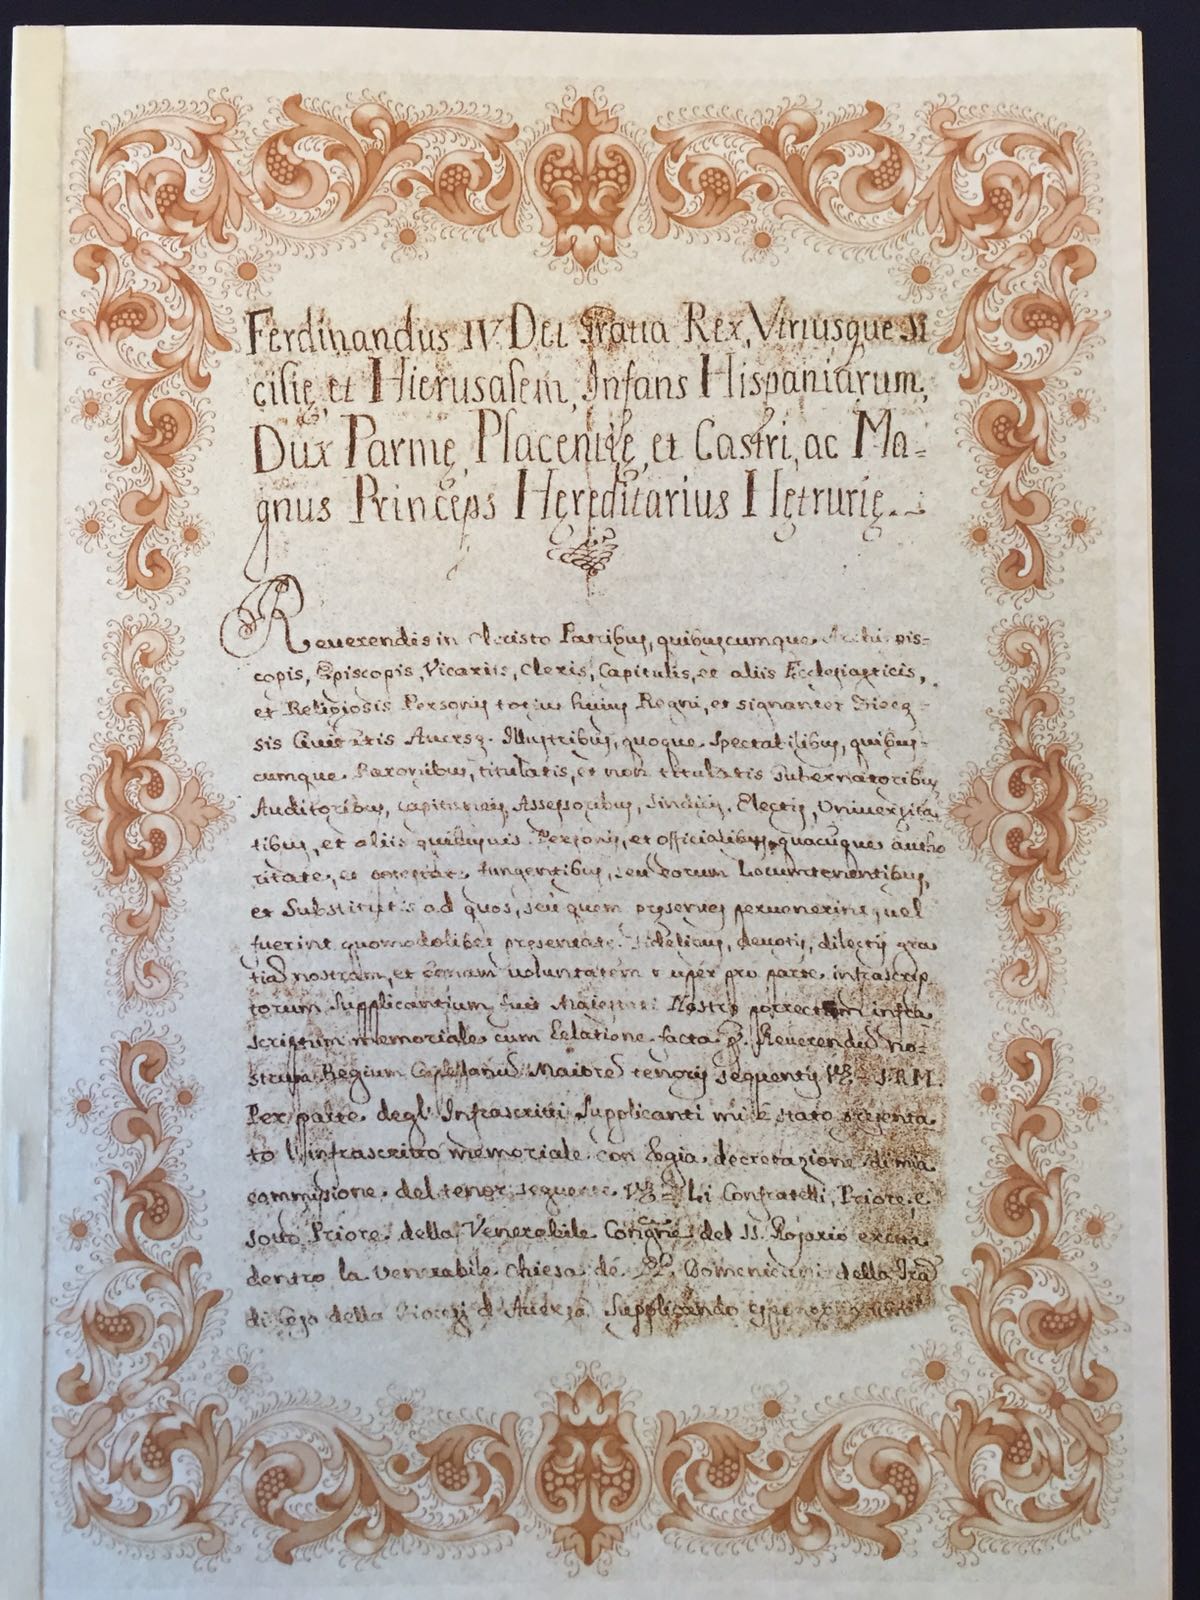 Ferdinandus IV. Dei Gratia Rex, Vtriusque Si
cilię, et Hierusalem, Infans Hispaniarum,
Dux Parmę, Placentię, et Castri, ac Ma=
gnus Princeps Hęreditarius Hętrurię.
Reuerendis in Christo Patribus, quibuscumque Archiepis=
copis, Episcopis, Vicariis, Cleris, Capitulis, et aliis Ecclesiasticis,
et Religiosis Personis totius huius Regni, et signanter Diocę=
sis Ciuitatis Auersę. Illustribus, quoque Spectabilibus, quibus=
cumque Baronibus, titulatis, et non titulatis Gubernatoribus
Auditoribus, Capitaneis, Assessoribus, Sindicis, Electis, Uniuersita
tibus, et aliis quibusuis Personis, et officialibus quacuque autho
ritate, et potestate fungentibus, seu eorum Locumtenentibus,
et Substitutis ad quos, seu quem presentes peruenerint, uel
fuerint quomodolibet presentate. Fidelibus, deuotis, dilectis gra
tia nostram, et bonam uoluntatem pro parte infrascrip
torum Supplicantium fuit Maiestati Nostrę porrectum infra
scriptum memoriale cum Relatione facta p. Reuerendu no=
strum Regium Capellanu Maiore tenoris sequentis Vz. S.R.M.
Per parte degl' Infrascritti Supplicanti mi è stato presenta
to l'infrascritto memoriale con Regia decretazione di mia
commissione del tenor seguente Vz. Li Confratelli, Priore, e
sotto Priore della Venerabile Congne del SS. Rosario eretta
dentro la venerabile Chiesa de PP. Domenicani della Tra
di Cesa della Diocesi d'Auersa Supplicando espongono